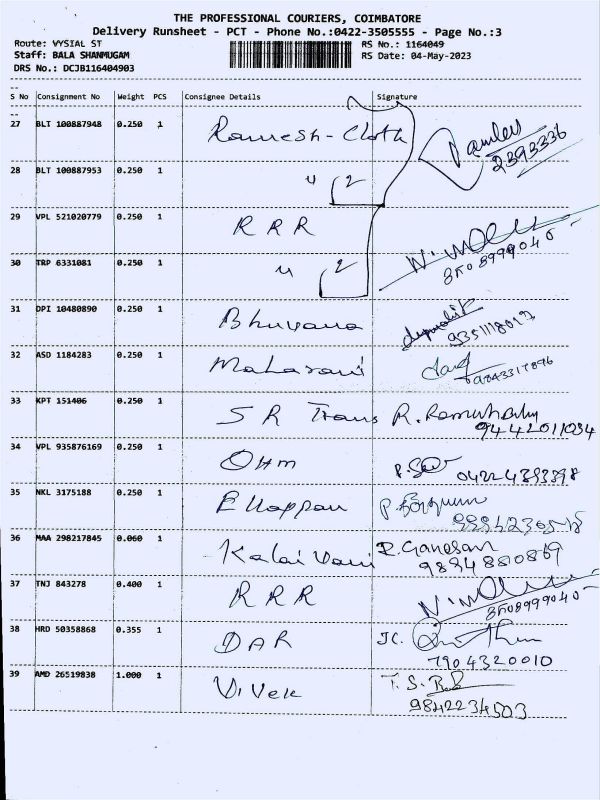 THE PROFESSIONAL COURIERS, COIMBATORE
Delivery Runsheet - PCT - Phone No.:0422-3505555 - Page No.:3
Route: VYSIAL ST RS No.: 1164049
Staff: BALA SHANMUGAM RS Date: 04-May-2023
DRS No.: DCJB116404903
S No Consignment No Weight PCS Consignee Details Signature
27 BLT 100887948 0.250 1 Ramesh-Cloth 2393336
28 BLT 100887953 0.250 1 " 2
29 VPL 521020779 0.250 1 R R R
8508999040
30 TRP 6331081 0.250 1 " 2
31 DPI 10480890 0.250 1 Bhuvana
32 ASD 1184283 0.250 1 Maharani
33 KPT 151406 0.250 1 S R Trans
9442011034
34 VPL 935876169 0.250 1 OHM
35 NKL 3175188 0.250 1 Ellappan
36 MAA 298217845 0.060 1 Kalai Vani R.Ganesan
37 TNJ 843278 0.400 1 R R R
8508999040
38 HRD 50358868 0.355 1 DAR
7904320010
39 AMD 26519838 1.000 1 Vivek T.S.
9842234503